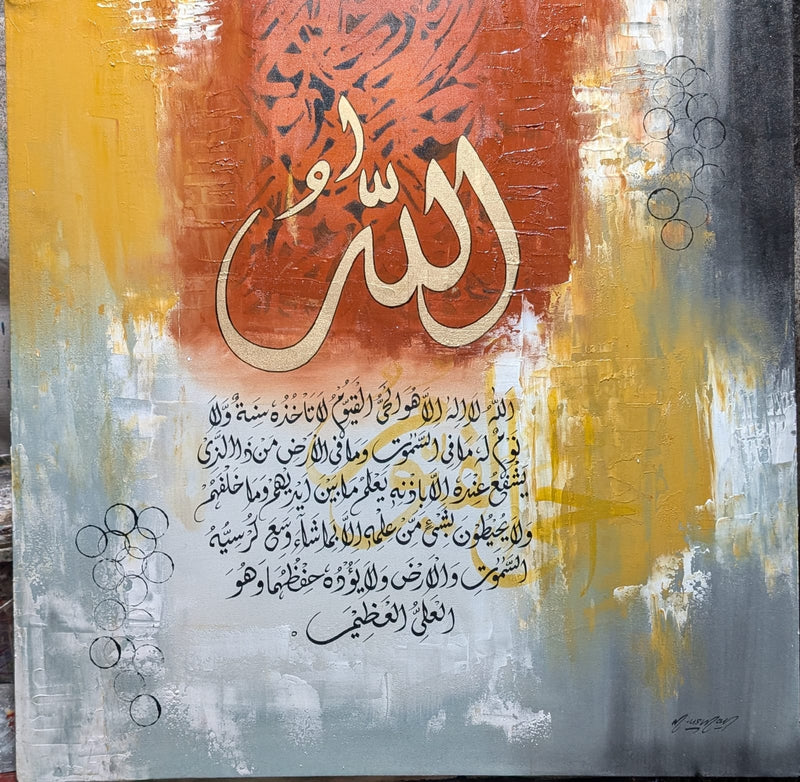 اللهُ
اللهُ لا اِلٰهَ اِلاَّ هُوَ الحَیُّ الْقَیُّوْمُ لَا تَاْخُذُهٗ سِنَةٌ وَّلَا
نَوْمٌ لَهٗ مَا فِی السَّمٰوٰتِ وَمَا فِی الْاَرْضِ مَنْ ذَا الَّذِیْ
یَشْفَعُ عِنْدَهٗ اِلاَّ بِاِذْنِهٖ یَعْلَمُ مَا بَیْنَ اَیْدِیْهِمْ وَمَا خَلْفَهُمْ
وَلَا یُحِیْطُوْنَ بِشَیْءٍ مِّنْ عِلْمِهٖ اِلاَّ بِمَا شَاءَ وَسِعَ كُرْسِیُّهُ
السَّمٰوٰتِ وَالْاَرْضَ وَلَا یَؤُدُهٗ حِفْظُهُمَا وَهُوَ
الْعَلِیُّ الْعَظِیْمُ